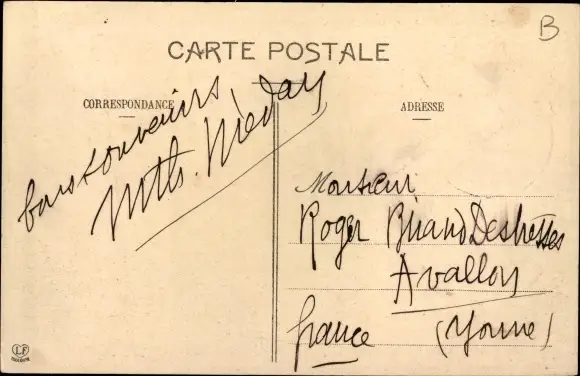 B
CARTE POSTALE
CORRESPONDANCE
bons souvenirs
ADRESSE
Monsieur
Roger Briand Deshesses
Avallon
france (Yonne)
LF